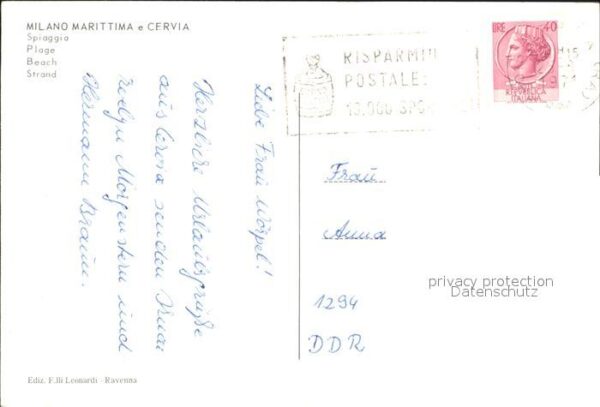 MILANO MARITTIMA e CERVIA
Spiaggia
Plage
Beach
Strand
Liebe Frau Wörpel!
Herzliche Urlaubsgrüße
aus Cervia senden Ihnen
Evelyn Morgenstern und
Hermann Braun.
LIRE 40
REPUBBLICA
ITALIANA
RISPARMIO
POSTALE:
10.000
Frau
Anna
1294
DDR
privacy protection
Datenschutz
Ediz. F.lli Leonardi - Ravenna